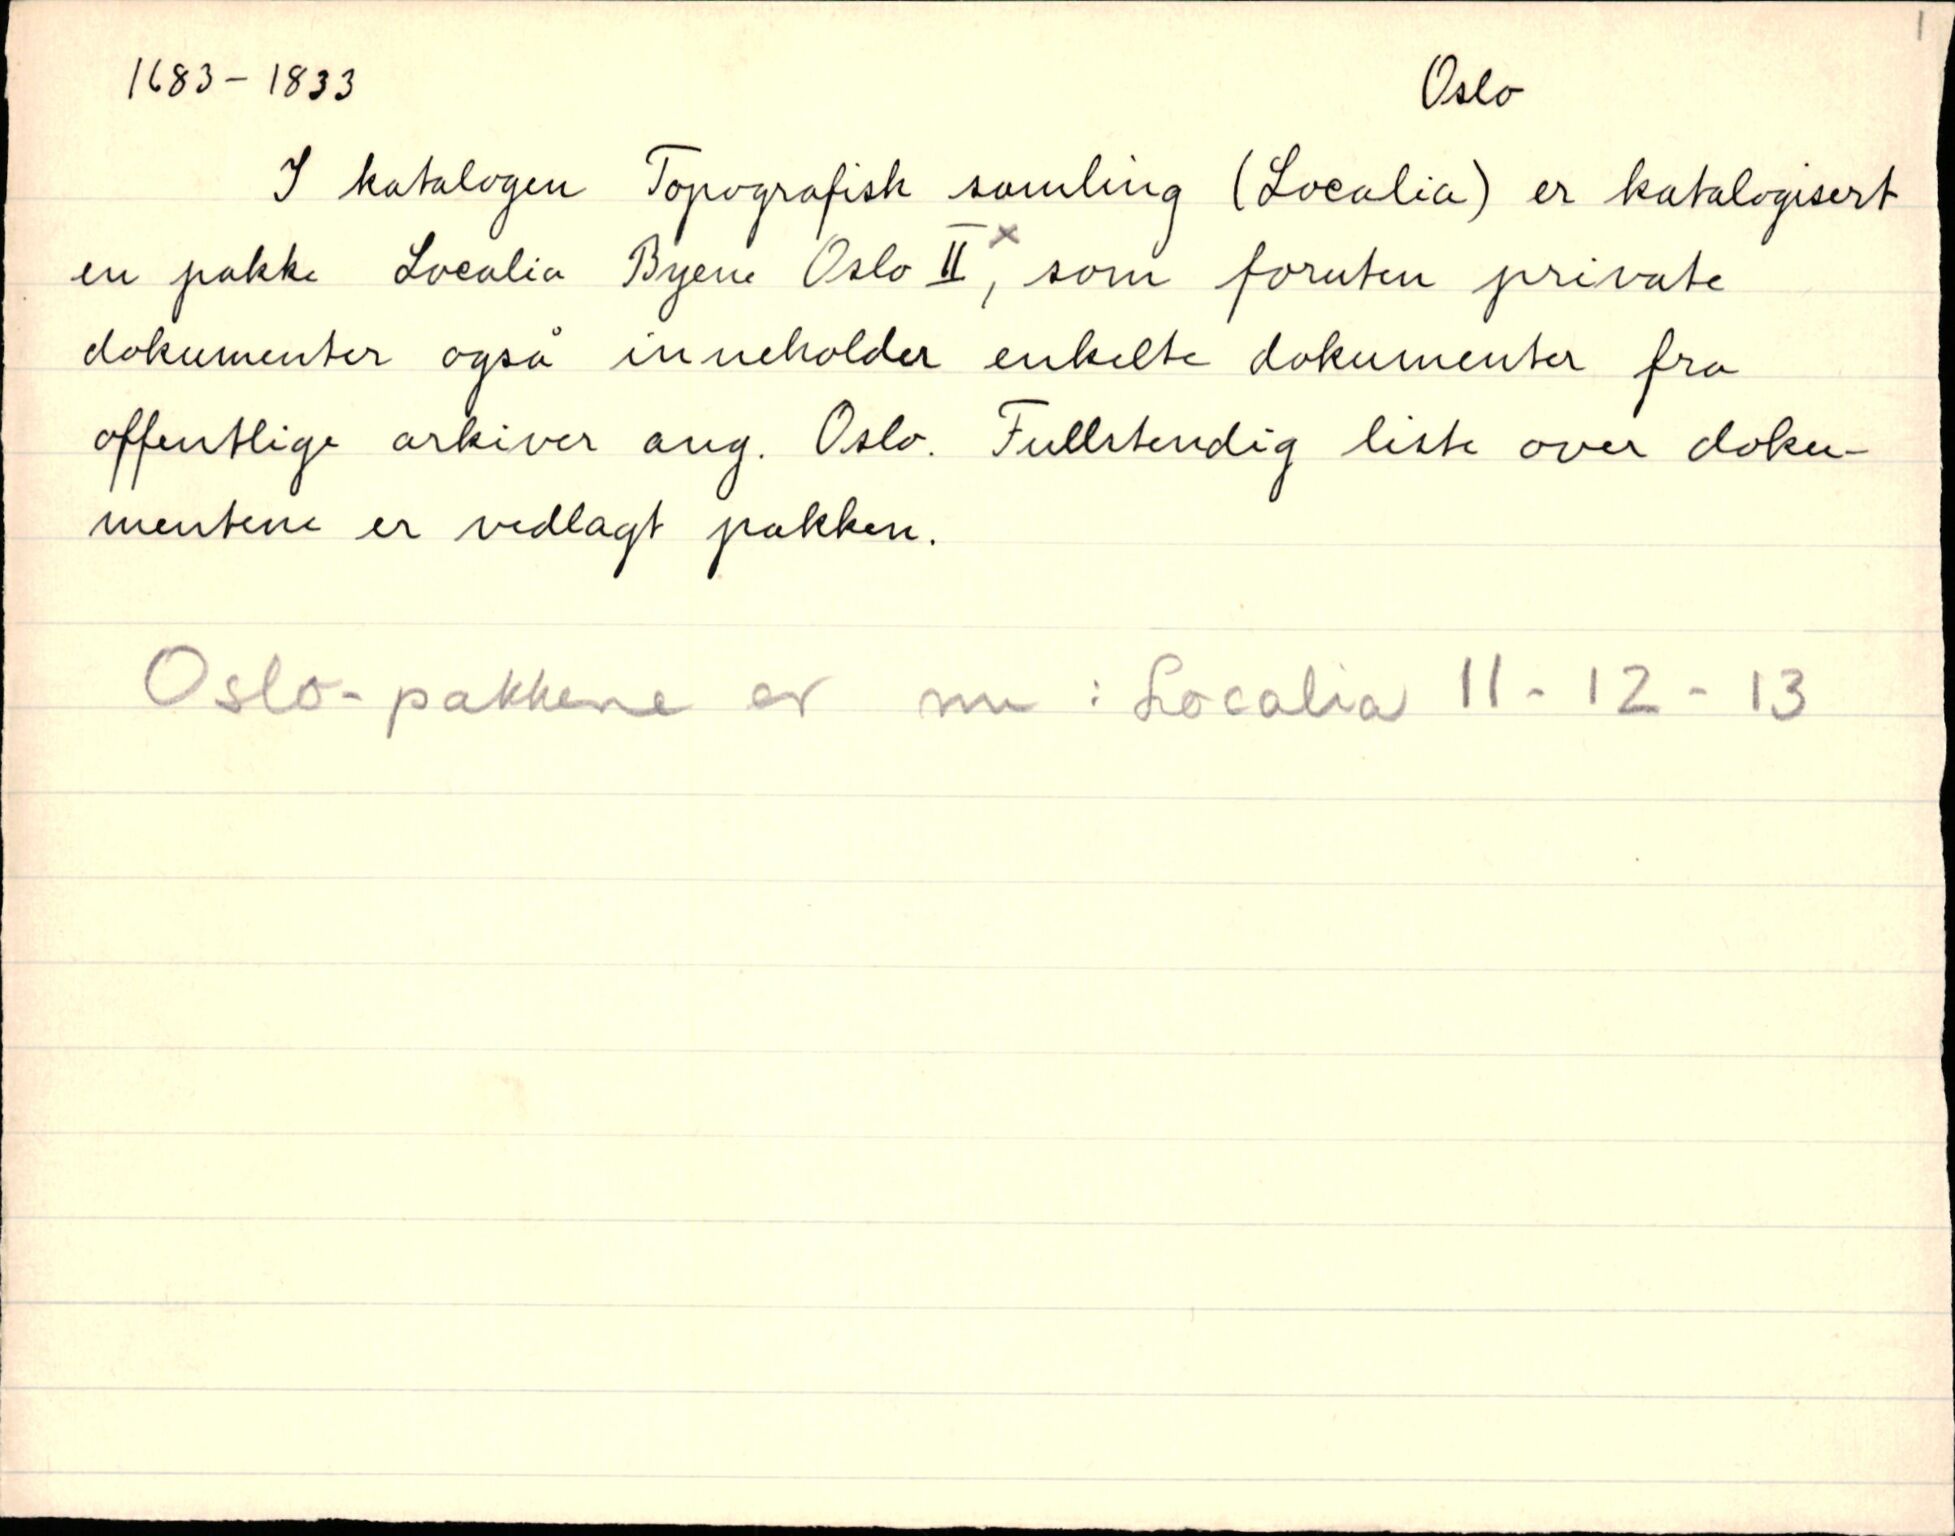 1
1683 - 1833 Oslo
I katalogen Topografisk samling (Localia) er katalogisert
en pakke Localia Byene Oslo II x, som foruten private
dokumenter også inneholder enkelte dokumenter fra
offentlige arkiver ang. Oslo. Fullstendig liste over doku-
mentene er vedlagt pakken.
Oslo-pakkene er nu : Localia 11 - 12 - 13